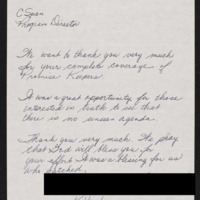 C-Span
Program Director
We want to thank you very much
for your complete coverage of
Promise Keepers.
It was a great opportunity for those
interested in truth to see that
there is no unseen agenda.
Thank you very much. We pray
that God will bless you for
your effort. It was a blessing for us
who watched.